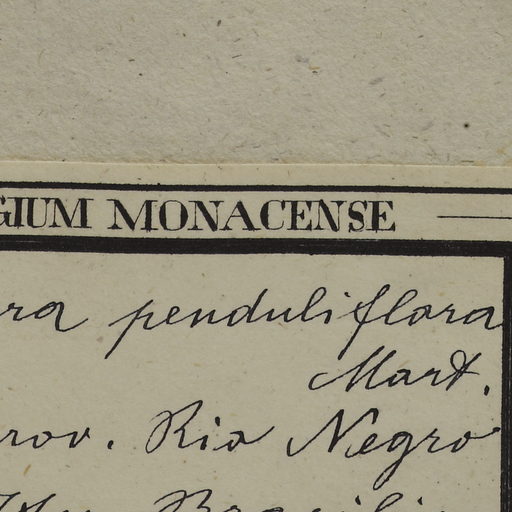 GIUM MONACENSE
ra penduliflora
Mart.
rov. Rio Negro